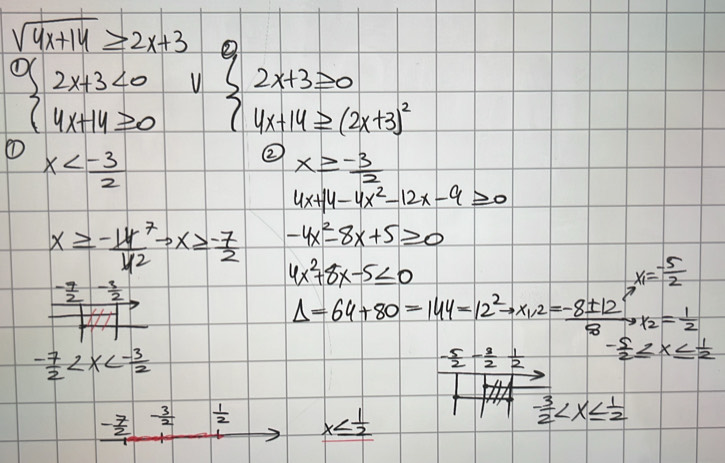 √4x+14 ≥ 2x+3
① { 2x+3<0 ∨ ② { 2x+3≥0
4x+14≥0 4x+14≥(2x+3)²
① x<-3/2
x≥-14/42 7 → x≥-7/2
-7/2 -3/2
-7/2≤x<-3/2
② x≥-3/2
4x+14-4x²-12x-9≥0
-4x²-8x+5≥0
4x²+8x-5≤0
Δ=64+80=144=12² → x₁,₂=-8±12/8
x₁=-5/2
x₂=1/2
-5/2≤x≤1/2
-5/2 -3/2 1/2
-3/2<x≤1/2
-7/2 -3/2 1/2
x≤1/2